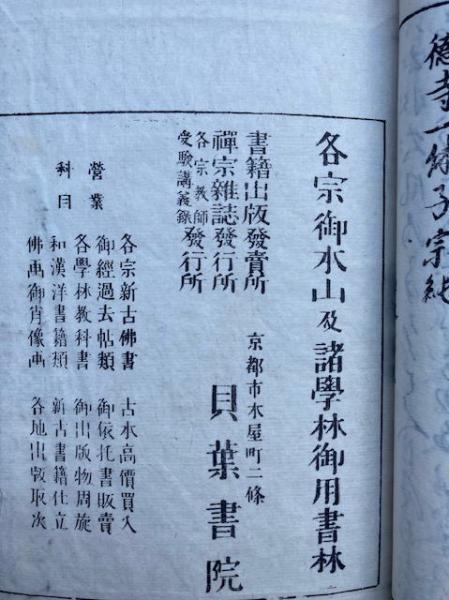 德寺一絲子宗純
各宗御本山及諸學林御用書林
書籍出版發賣所
禪宗雜誌發行所
各宗教師受驗講義錄發行所
京都市木屋町二條
貝葉書院
營業科目
各宗新古佛書
御經過去帖類
各學林教科書
和漢洋書籍類
佛画御肖像画
古本高價買入
御依托書販賣
御出版物周旋
新古書籍仕立
各地出版取次